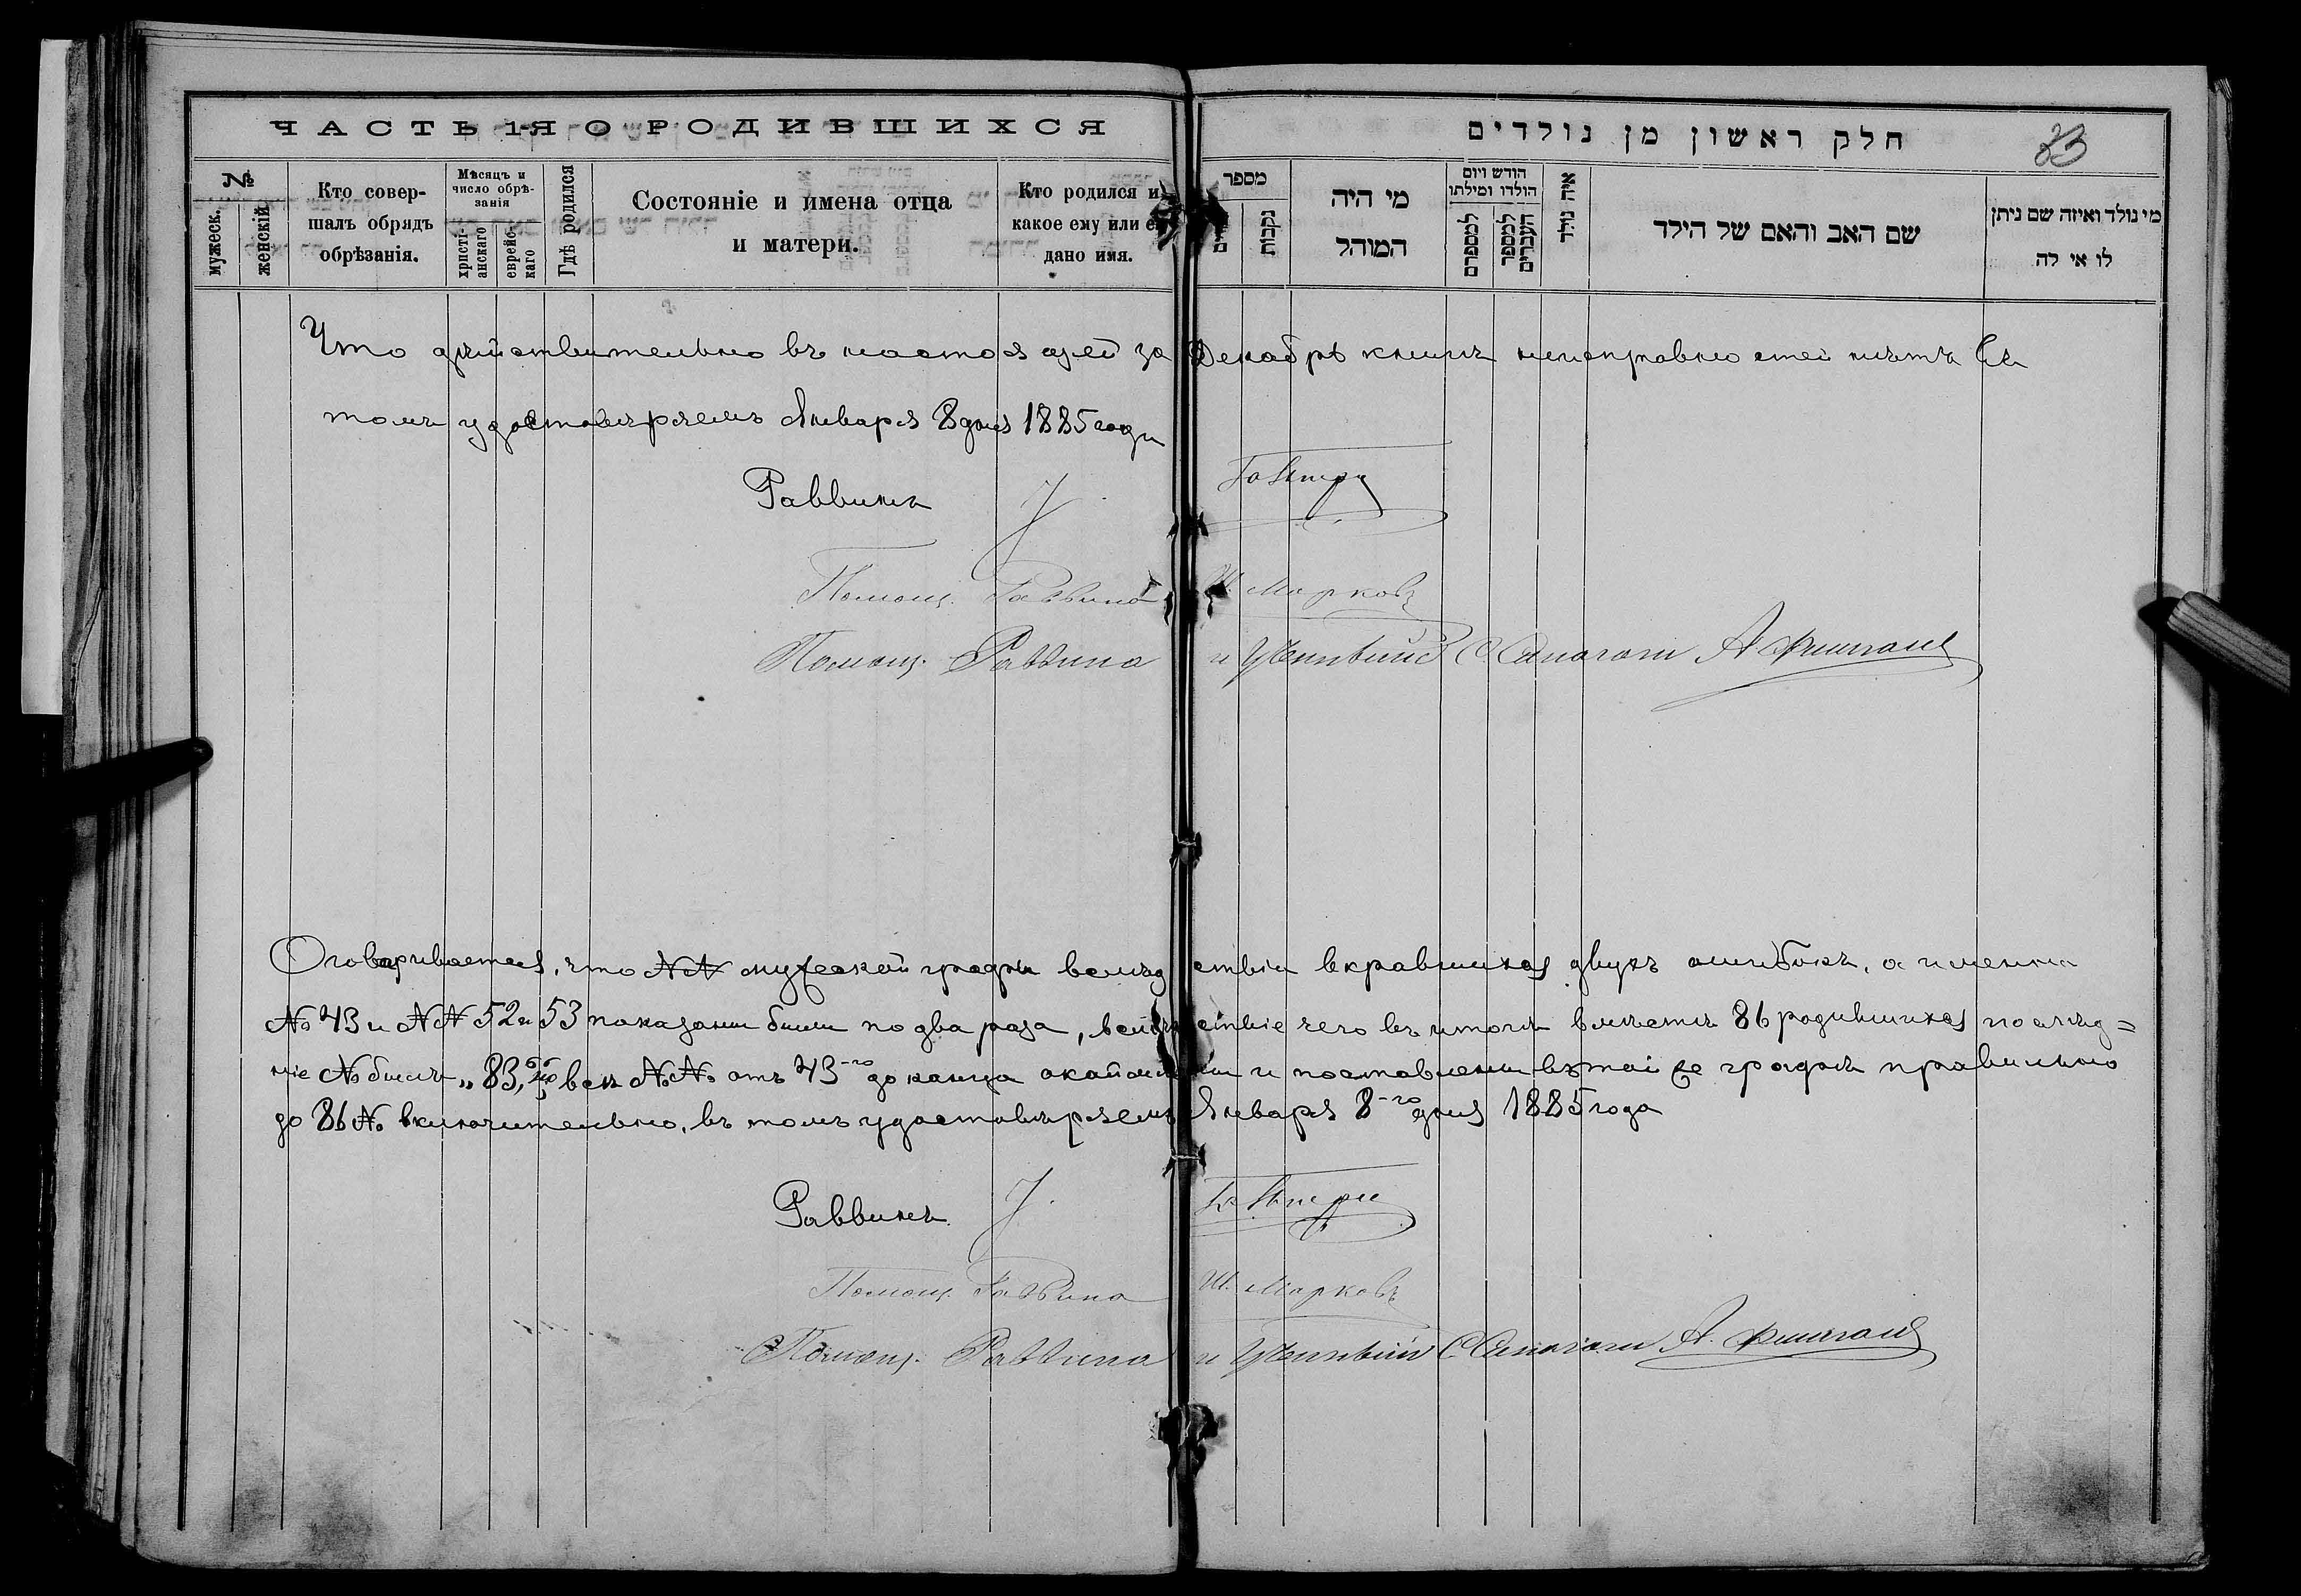 ЧАСТЬ 1-Я О РОДИВШИХСЯ
№
мужеск.
женскій
Кто совер-
шалъ обрядъ
обрѣзанія.
Мѣсяцъ и
число обрѣ-
занія
христі-
анскаго
еврейс-
каго
Гдѣ родился
Состояніе и имена отца
и матери.
Кто родился и
какое ему или
дано имя.
חלק ראשון מן נולדים
83
מספר
נקבות
מי היה
המוהל
חודש ויום
הולדו ומילתו
למספרם
למספר
העברים
איה נולד
שם האב והאם של הילד
מי נולד ואיזה שם ניתן
לו או לה
Что дѣйствительно въ настоящей за Декабрь книгѣ неисправностей нѣтъ Въ
томъ удостовѣряемъ Января 8 дня 1885 года
Раввинъ
Помощ. Раввина Ш. Марковъ
Помощ. Раввина и Ученый А.
Оговаривается, что №№ мужеской графы вслѣдствіи вкравшихся двухъ ошибокъ, а именно
№ 43 и №№ 52 и 53 показаны были по два раза, вслѣдствіе чего въ итогѣ вмѣсто 86 родившихся послѣд=
ніе № былъ „83, но всѣ №№ отъ 43-го до конца и поставлены въ той же графѣ правильно
до 86 № включительно, въ томъ удостовѣряемъ Января 8-го дня 1885 года
Раввинъ
Помощ. Раввина Ш. Марковъ
Помощ. Раввина и А.